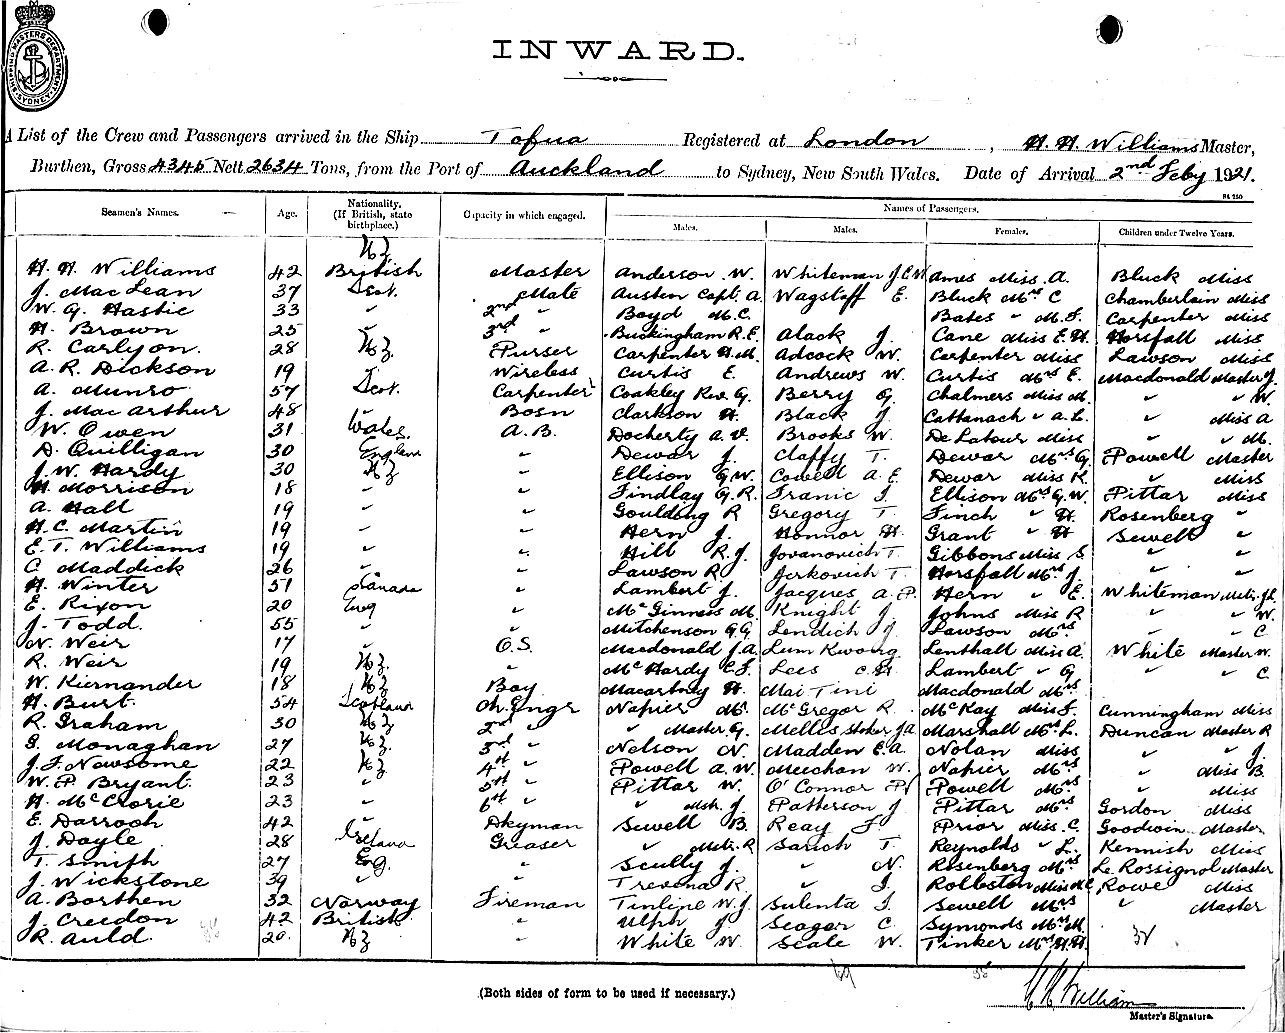 SHIPPING MASTERS DEPARTMENT SYDNEY
INWARD.
A List of the Crew and Passengers arrived in the Ship Tofua Registered at London, H. H. Williams Master,
Burthen, Gross 4345 Nett 2634 Tons, from the Port of Auckland to Sydney, New South Wales. Date of Arrival 2nd Feby 1921.
Seamen's Names. Age. Nationality. (If British, state birthplace.) Capacity in which engaged. Names of Passengers.
Males. Males. Females. Children under Twelve Years.
NZ
H. H. Williams 42 British Master Anderson W. Whiteman J.C.W Ames Miss A. Bluck Miss
J. MacLean 37 Scot. Mate Austen Capt. A. Wagstaff E. Bluck Mrs C Chamberlain Miss
W. G. Hastie 33 " 2nd " Boyd M. C. Bates " M. F. Carpenter Miss
H. Brown 25 3rd " Buckingham R. E. Alack J. Cane Miss E. H. Horsfall Miss
R. Carlyon. 28 NZ Purser Carpenter H. M. Adcock W. Carpenter Miss Lawson Miss
A. R. Dickson 19 " Wireless Curtis E. Andrews W. Curtis Mrs E. Macdonald Master J.
A. Munro 57 Scot. Carpenter Coakley Rev. G. Berry G. Chalmers Miss M. " " W.
J. MacArthur 48 " Bosn Clarkson H. Black J. Cattanach " A. L. " Miss A
W. Owen 31 Wales. A. B. Docherty A. V. Brooks W. De Latour Miss " " M.
D. Quilligan 30 England " Dewar J. Claffy T. Dewar Mrs G. Powell Master
J. W. Hardy 30 NZ " Ellison G. W. Cowell A. E. Dewar Miss R. " Miss
H. Morrison 18 " " Findlay G. R. Franic I. Ellison Mrs G. W. Pittar Miss
A. Hall 19 " " Goulding R Gregory T. Finch " H. Rosenberg "
H. C. Martin 19 " " Hern J. Honnor H. Grant " H Sewell "
E. T. Williams 19 " " Hill R. J. Jovanovich T. Gibbons Miss S. " "
C. Maddick 26 " " Lawson R. Jerkovich T. Horsfall Mrs J. " "
H. Winter 51 Canada " Lambert J. Jacques A. P. Hern " E. Whiteman Mstr. J. L.
E. Rixon 20 Eng " McGinness M. Knight J Johns Miss R " " W.
J. Todd. 55 " " Mitchenson G. G. Lendich J. Lawson Mrs " " C
N. Weir 17 " O.S. Macdonald J. A. Lum Kwong Lenthall Miss A. White Master W.
R. Weir 19 NZ. " McHardy C. F. Lees C. H. Lambert " G " " C.
W. Kiernander 18 NZ Boy Macartney H. Mai Tini Macdonald Mrs
H. Burt. 54 Scotland Ch. Engr Napier Mr. McGregor R. McKay Miss F. Cunningham Miss
R. Graham 30 NZ 2nd " " Master G. Mellis Stoker J. A. Marshall Mrs L. Duncan Master R
G. Monaghan 27 NZ. 3rd " Nelson N. Madden E. A. Nolan Miss " " J.
J. F. Newsome 22 NZ 4th " Powell A. W. Meechan W. Napier Mrs " Miss B.
W. P. Bryant. 23 " 5th " Pittar W. O'Connor P. Powell Mrs " Miss
H. McCrorie 23 " 6th " " Mstr. J. Patterson J Pittar Mrs Gordon Miss
E. Darroch 42 " Dkyman Sewell B. Reay F. Prior Miss C. Goodwin Master
J. Doyle 28 Ireland Greaser " Mstr. R Sarich T. Reynolds " L. Kennish Miss
T. Smith 27 Eng. " Scully J. " N. Rosenberg Mrs Le Rossignol Master
J. Wickstone 39 " " Trevena R. " I. Rolleston Miss Rowe Miss
A. Borthen 32 Norway Fireman Tinline W. J. Sulenta I. Sewell Mrs " Master
J. Creedon 42 British " Ulph J Seager C. Symonds Mrs M.
R. Auld. 20. NZ " White W. Seale W. Tinker Mrs H. H. 32
69
(Both sides of form to be used if necessary.)
H H William
Master's Signature.